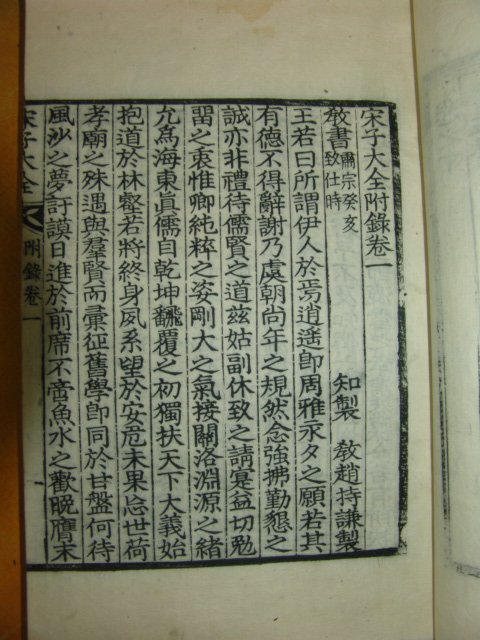 宋子大全附錄卷一
敎書肅宗癸亥致仕時
知製 敎趙持謙製
王若曰所謂伊人於焉逍遥卽周雅永夕之願若其
有德不得辭謝乃虞朝尙年之規然念強拂勤懇之
誠亦非禮待儒賢之道玆姑副休致之請寔益切勉
留之衷惟卿純粹之姿剛大之氣接關洛淵源之緖
允爲海東眞儒自乾坤飜覆之初獨扶天下大義始
抱道於林壑若將終身夙系望於安危未果忘世荷
孝廟之殊遇與羣賢而彙征舊學卽同於甘盤何待
風沙之夢訏謨日進於前席不啻魚水之歡晩膺末
宋子大全
附錄卷一